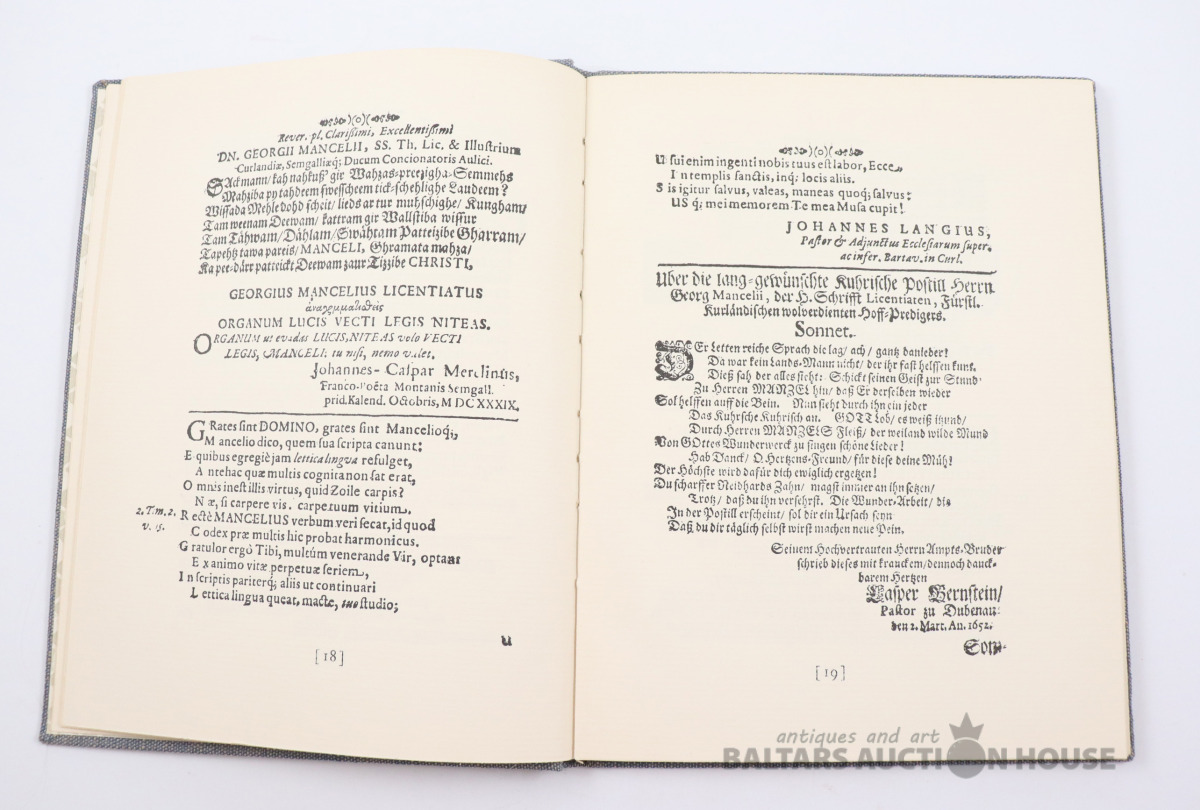 )(o)(
Rever. pl. Clarißimi, Excellentißimi
DN. GEORGII MANCELII, SS. Th. Lic. & Illustrium
Curlandiæ, Semgalliæq; Ducum Concionatoris Aulici.
SAckmann/ kah nahkuß' gir Wahzas-prezigha-Semmehs
Mahziba py tahdeem swescheem tick-schehlighe Laudeem?
Wissada Mehle dohd scheit/ lieds ar tur muhschighe/ Kungham/
Tam weenam Deewam/ kattram gir Wallstiba wissur
Tam Tähwam/ Dählam/ Swähtam Patteizibe Gharram/
Tapehtz tawa pareis/ MANCELI, Ghramata mahza/
Ka per-därr patteickt Deewam zaur Tizzibe CHRISTI,
GEORGIUS MANCELIUS LICENTIATUS
ἀναγραμματισθεὶς
ORGANUM LUCIS VECTI LEGIS NITEAS.
ORGANUM ut evadas LUCIS, NITEAS volo VECTI
LEGIS, MANCELI: tu nisi, nemo valet.
Johannes- Caspar Merclinus,
Franco-Poëta Montanis Semgall.
prid. Kalend. Octobris, M DC XXXIX.
GRates sint DOMINO, grates sint Mancelioq;,
Mancelio dico, quem sua scripta canunt:
E quibus egregiè jam lettica lingva refulget,
Antehac quæ multis cognita non sat erat,
Omnis inest illis virtus, quid Zoile carpis?
Næ, si carpere vis, carpe tuum vitium.
2. Tim. 2. v. 15.
Rectè MANCELIUS verbum veri secat, id quod
Codex præ multis hic probat harmonicus.
Gratulor ergò Tibi, multùm venerande Vir, optans
Ex animo vitæ perpetuæ seriem,
In scriptis pariterq; aliis ut continuari
Lettica lingua queat, macte, tuo studio;
U
[18]
)(o)(
Usui enim ingenti nobis tuus est labor, Ecce
In templis sanctis, inq; locis aliis.
Sis igitur salvus, valeas, maneas quoq; salvus:
US q; mei memorem Te mea Musa cupit!
JOHANNES LANGIUS,
Pastor & Adjunctus Ecclesiarum super.
ac infer. Bartav. in Curl.
Uber die lang-gewünschte Kuhrische Postill Herrn
Georg Mancelii, der H. Schrifft Licentiaten, Fürstl.
Kurländischen wolverdienten Hoff-Predigers.
Sonnet.
DEr Letten reiche Sprach die lag/ ach/ gantz danieder!
Da war kein Lands-Mann nicht/ der ihr fast helffen kunt.
Dieß sah der alles sieht: Schickt seinen Geist zur Stund
Zu Herren MANZEL hin/ daß Er derselben wieder
Sol helffen auff die Bein. Nun sieht durch ihn ein jeder
Das Kuhrsche Kuhrisch an. GOTT Lob/ es weiß itzund/
Durch Herren MANZELS Fleiß/ der weiland wilde Mund
Von GOttes Wunderwerck zu singen schöne Lieder!
Hab Danck/ O. Hertzens-Freund/ für diese deine Müh!
Der Höchste wird dafür dich ewiglich ergetzen!
Du scharffer Neidhards Zahn/ magst immer an ihn setzen/
Trotz/ daß du ihn versehrst. Die Wunder-Arbeit/ die
In der Postill erscheint/ sol dir ein Ursach seyn
Daß du dir täglich selbst wirst machen neue Pein.
Seinem Hochvertrauten Herrn Ampts-Bruder
schrieb dieses mit kranckem/ dennoch danck-
barem Hertzen
Casper Bernstein/
Pastor zu Dubenau:
den 2. Mart. An. 1652.
Son-
[19]
antiques and art
BALTARS AUCTION HOUSE